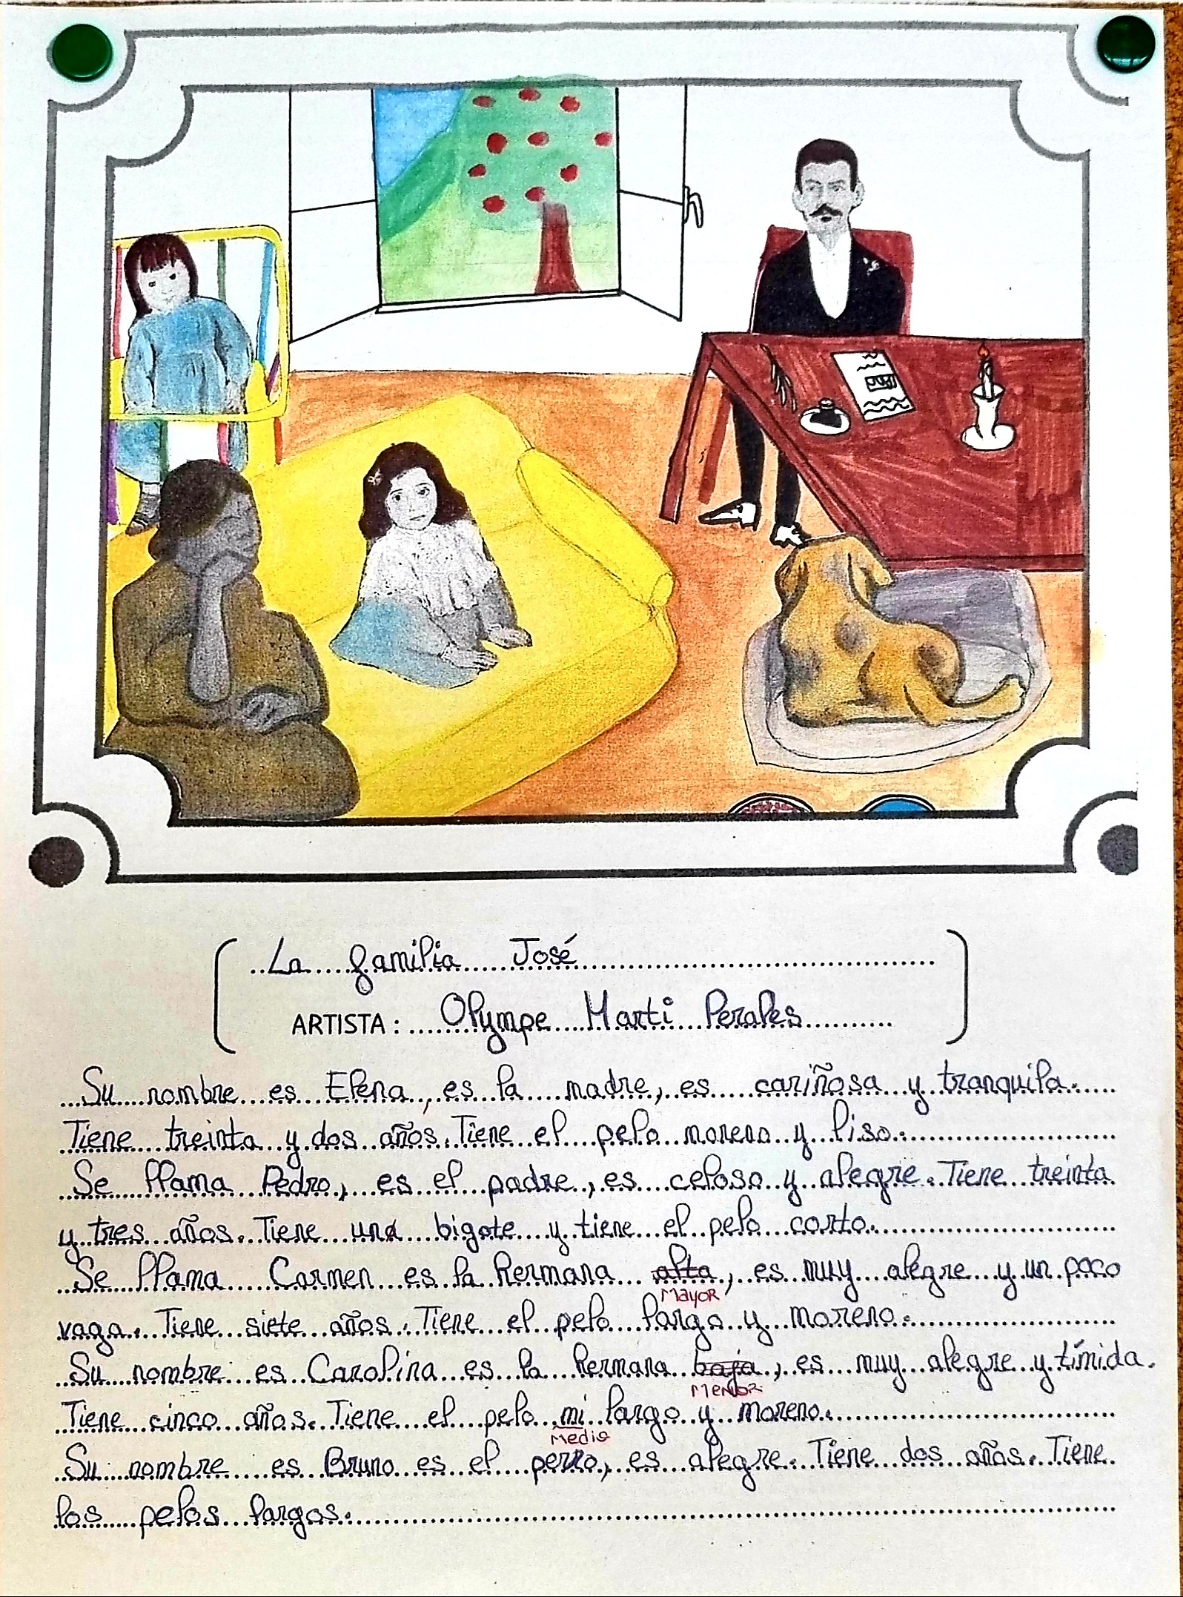 La familia José
ARTISTA: Olympe Marti Perales
Su nombre es Elena, es la madre, es cariñosa y tranquila.
Tiene treinta y dos años. Tiene el pelo moreno y liso.
Se llama Pedro, es el padre, es celoso y alegre. Tiene treinta
y tres años. Tiene una bigote y tiene el pelo corto.
Se llama Carmen es la hermana alta, es muy alegre y un poco
MAYOR
vaga. Tiene siete años. Tiene el pelo largo y moreno.
Su nombre es Carolina es la hermana baja, es muy alegre y tímida.
MENOR
Tiene cinco años. Tiene el pelo mi largo y moreno.
Medio
Su nombre es Bruno es el perro, es alegre. Tiene dos años. Tiene
los pelos largos.